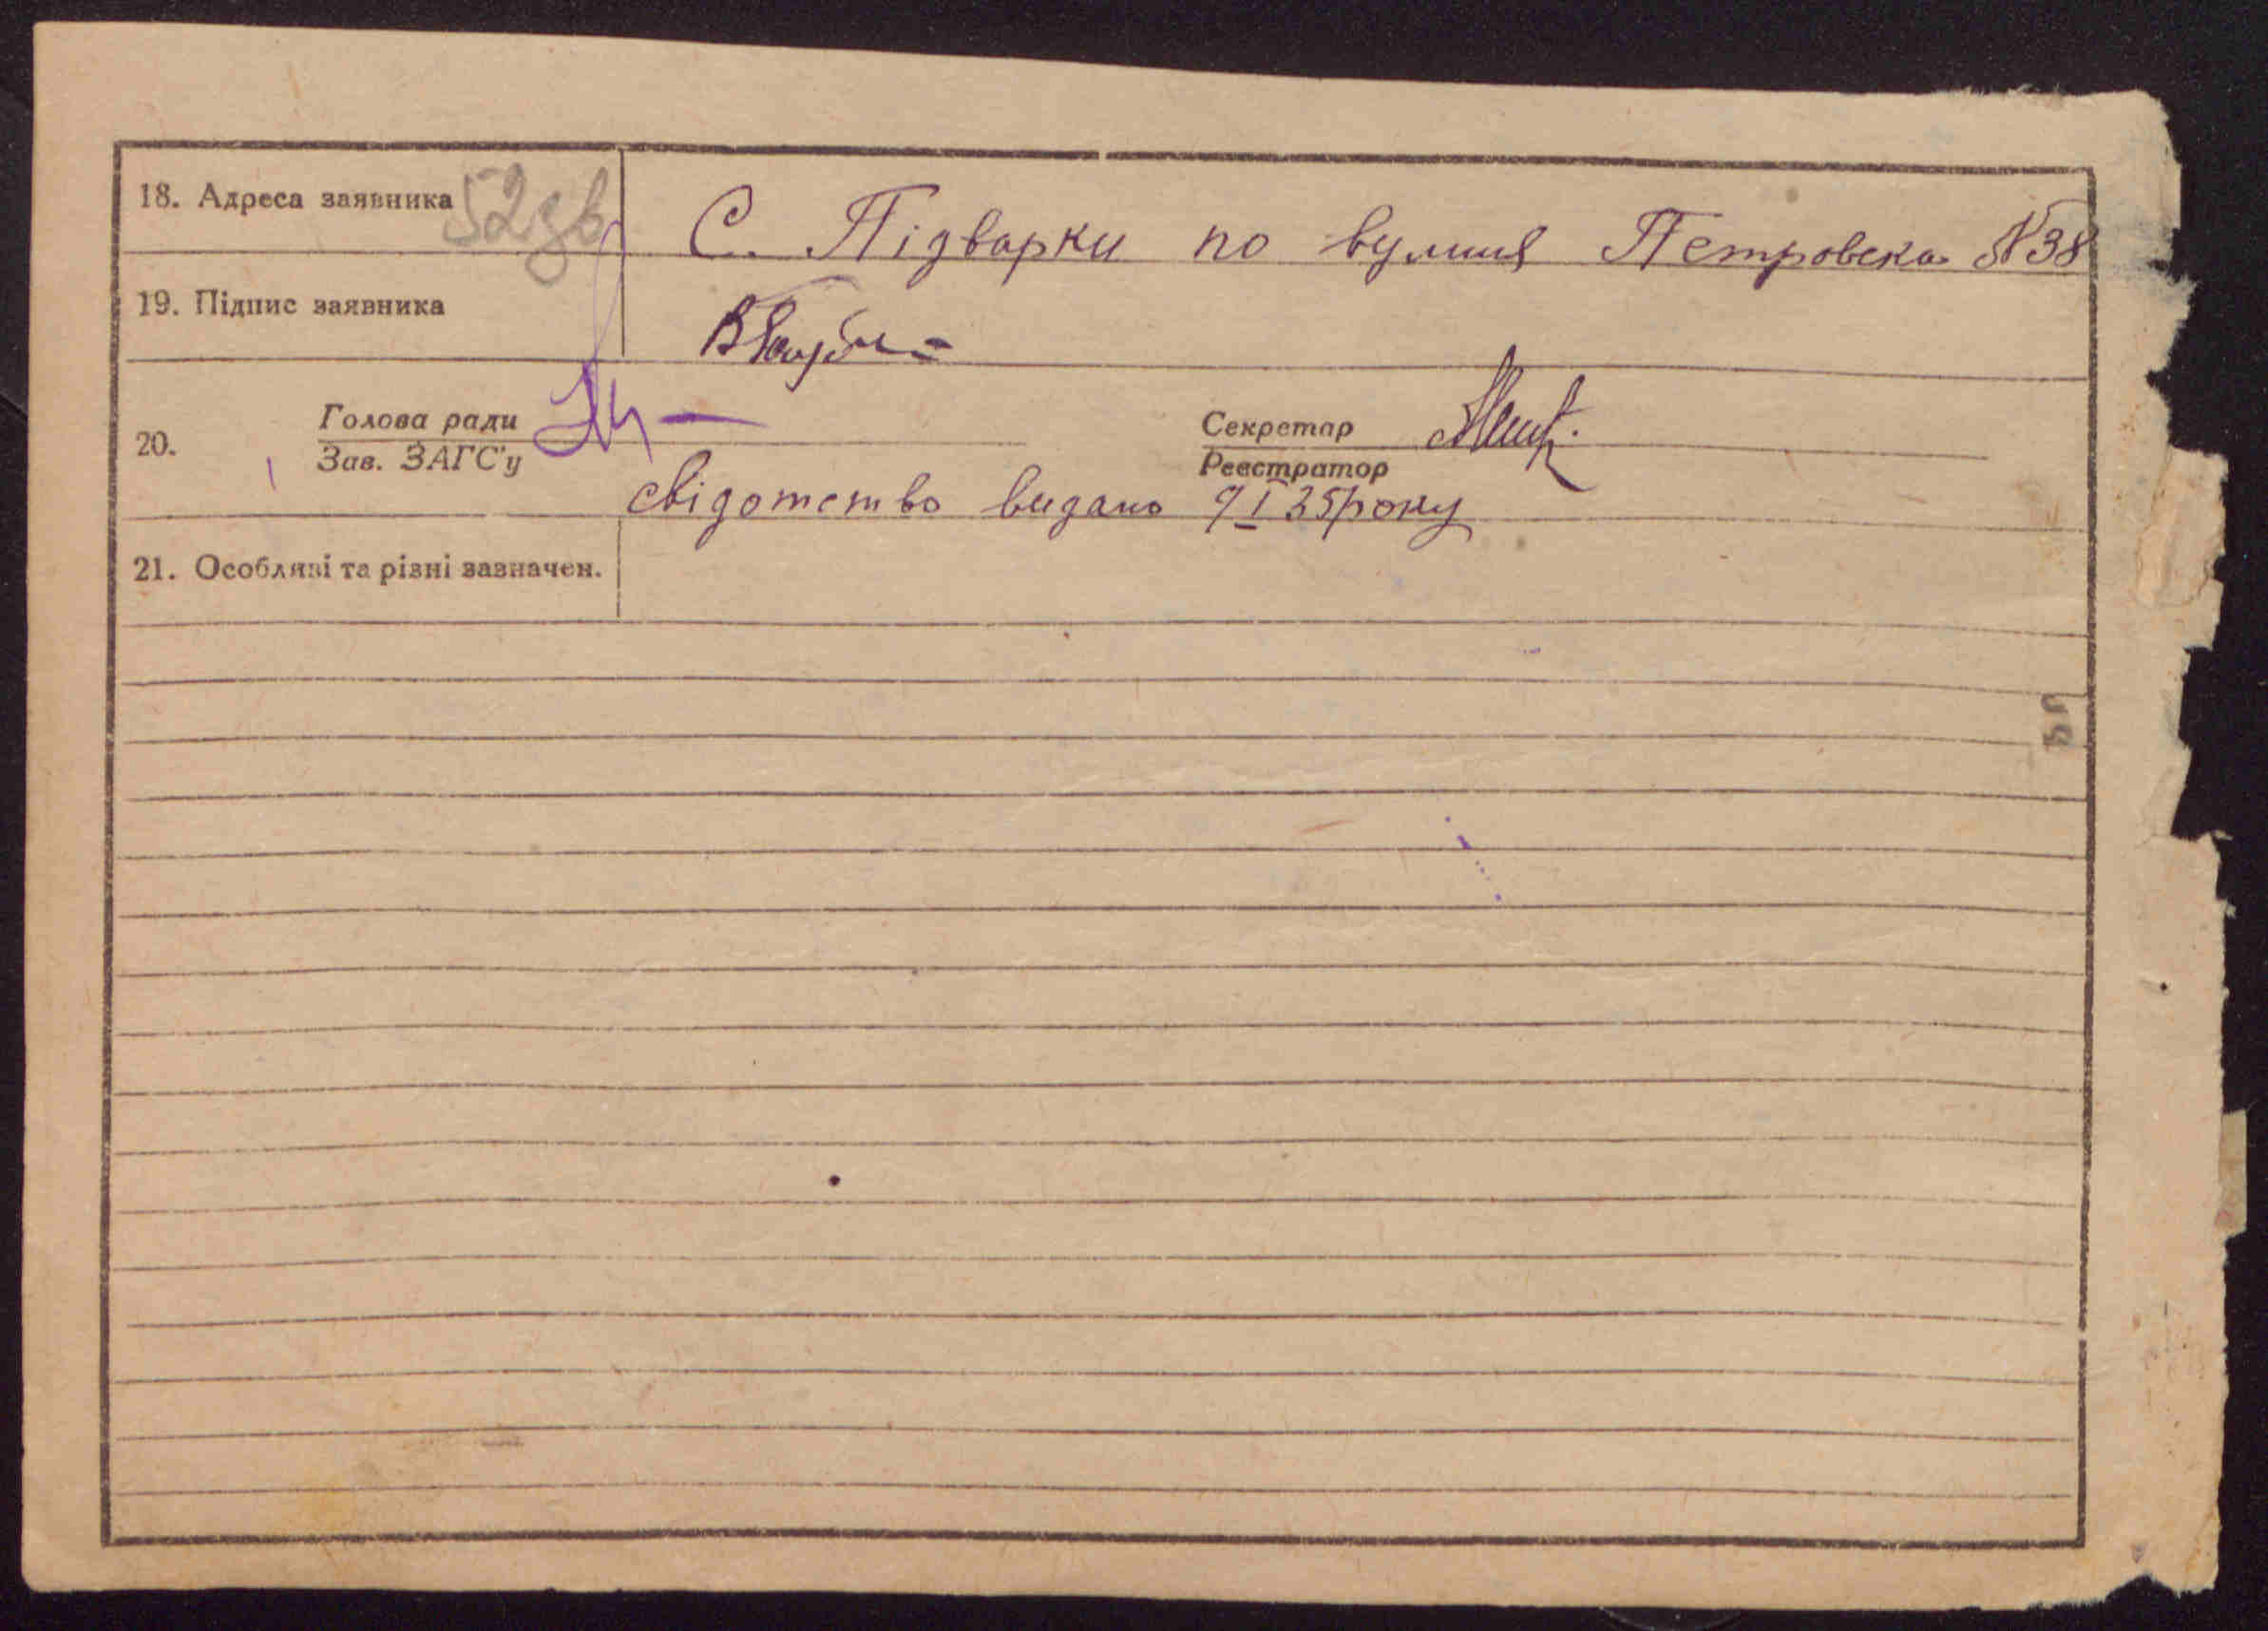 18. Адреса заявника 52зв С. Підварки по вулиця Петровска №38
19. Підпис заявника
20. Голова ради Секретар
Зав. ЗАГС'у Реєстратор
свідотство видано 9/I 35 року
21. Особливі та різні зазначен.
ВП